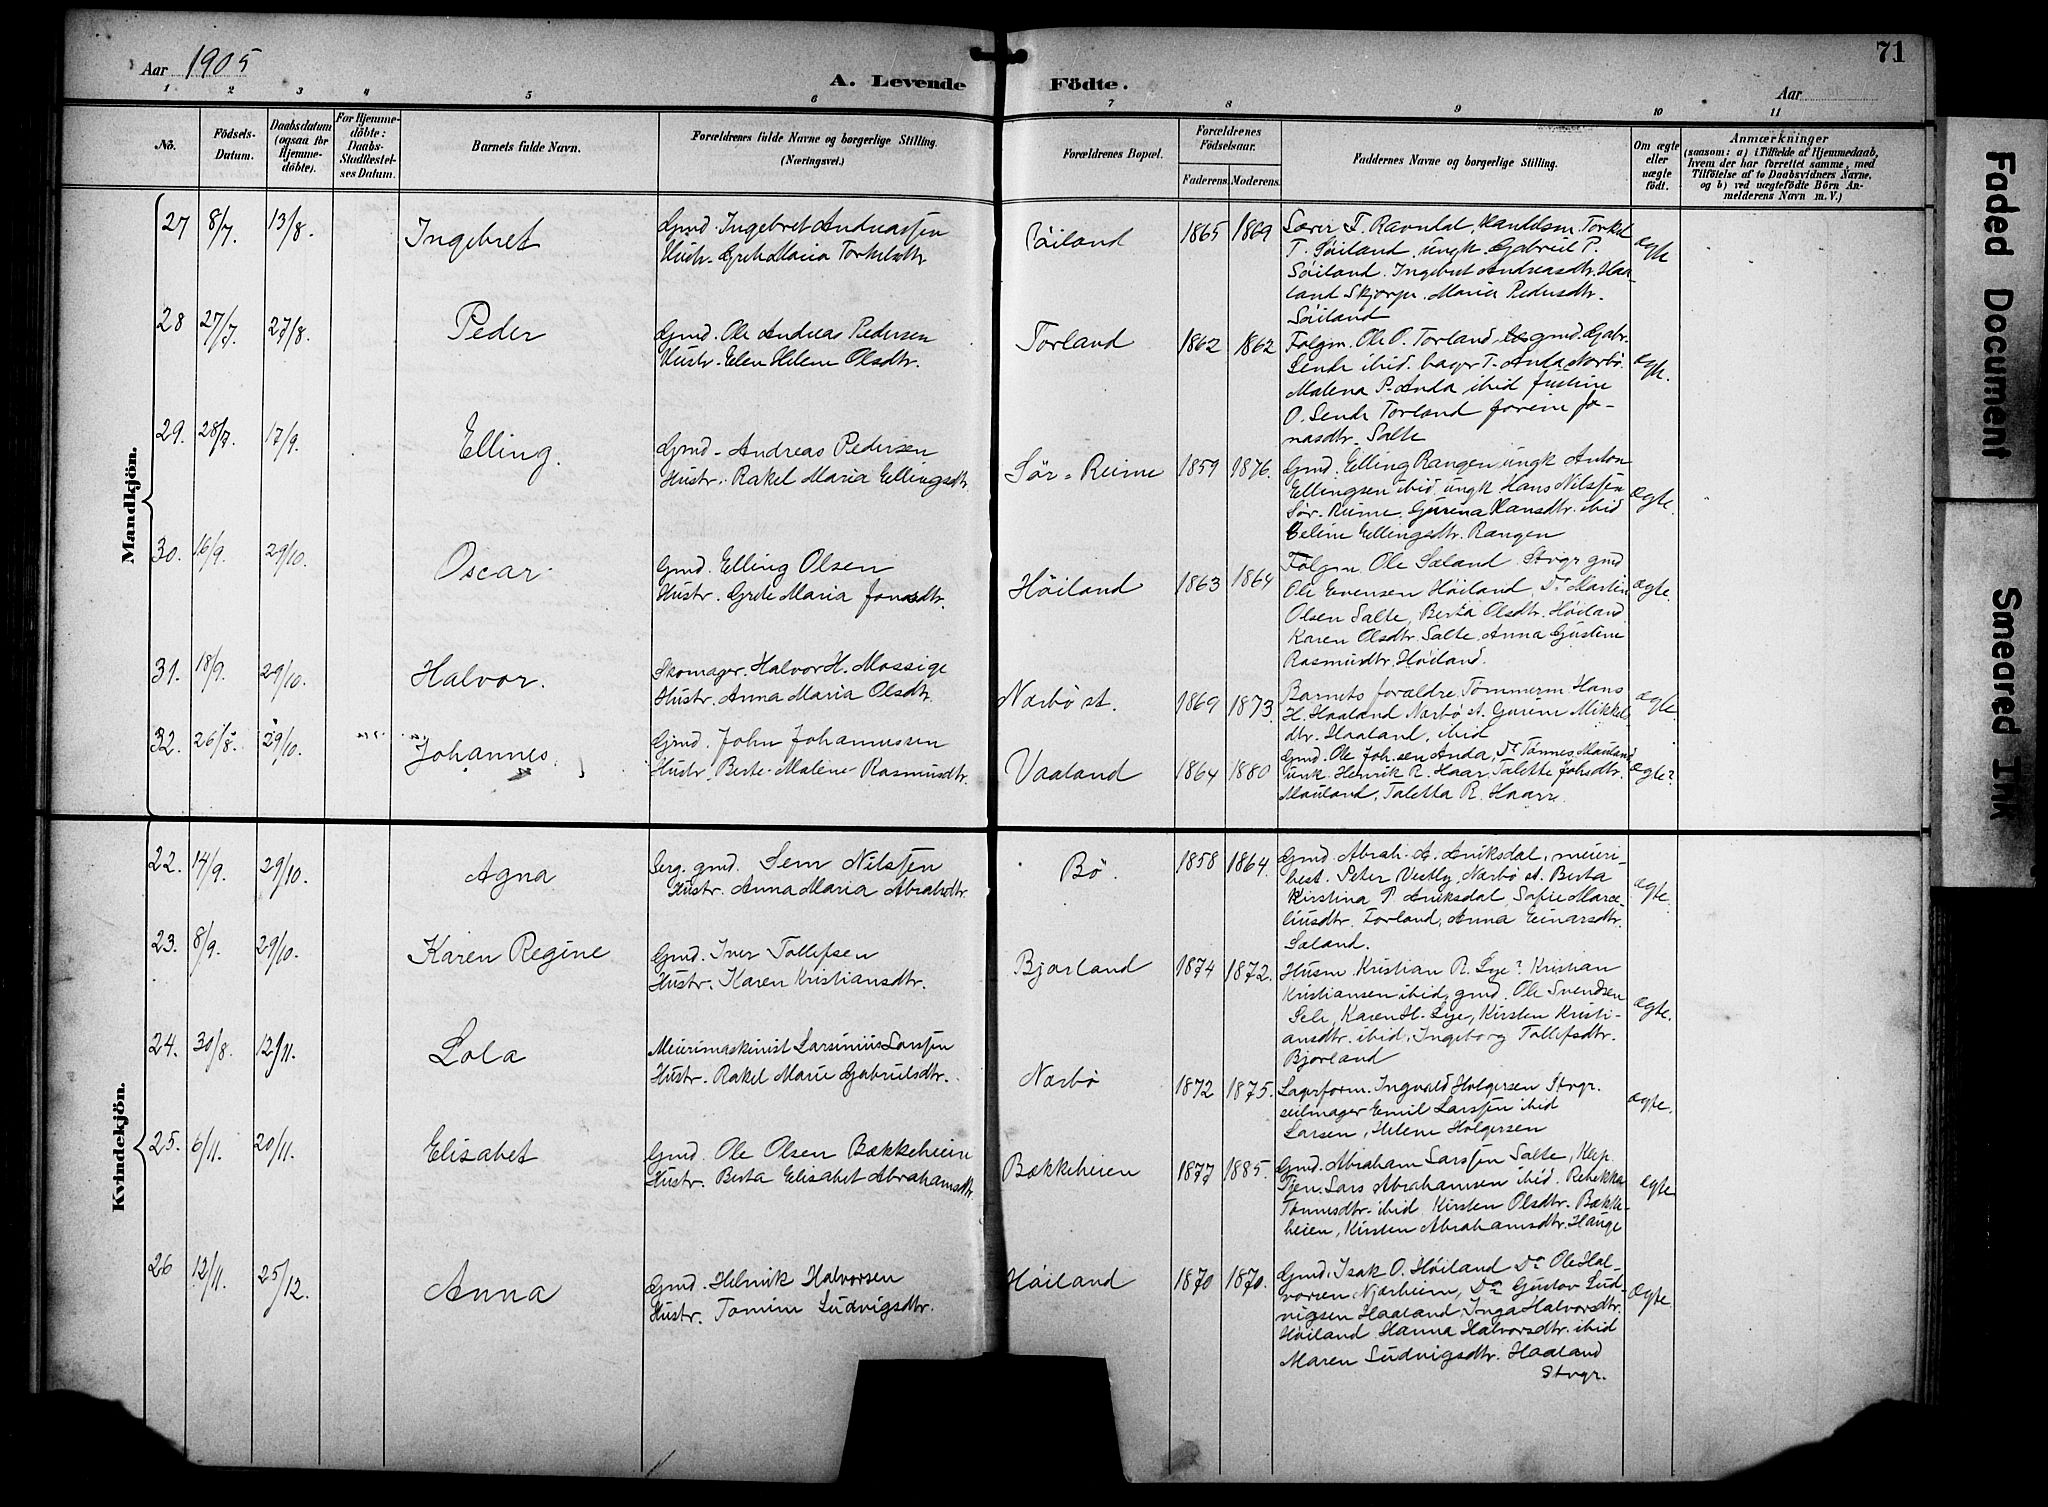 Aar 1905
A. Levende Födte.
Aar
71
1 2 3 4 5 6 7 8 9 10 11
No.
Födsels-Datum.
Daabsdatum (ogsaa for Hjemmedöbte).
For Hjemmedöbte: Daabs-Stadfæstelses Datum.
Barnets fulde Navn.
Forældrenes fulde Navne og borgerlige Stilling.
(Næringsvei.)
Forældrenes Bopæl.
Forældrenes Födselsaar.
Faderens. Moderens.
Faddernes Navne og borgerlige Stilling.
Om ægte eller uægte födt.
Anmærkninger
(saasom: a) i Tilfælde af Hjemmedaab,
hvem der har forrettet samme, med
Tilföielse af to Daabsvidners Navne,
og b) ved uægtefödte Börn An-
melderens Navn m. V.)
Mandkjön.
27 8/7. 13/8. Ingebret
Gmd. Ingebret Andreassen
Hustr. Grete Maria Torkelsdtr
Söiland 1865 1869
Lærer T. Ravndal, Handelsm. Torkel
T. Söiland, ungk. Gabriel P.
Söiland. Ingebret Andreasdtr. Haa-
land Skjorpe. Maria Pedersdtr.
Söiland
ægte
28 27/7. 27/8. Peder
Gmd. Ole Andreas Pedersen
Hustr. Elen Helene Olsdtr.
Torland 1862 1862
Folgm. Ole O. Torland, gmd. Gabr.
Lende ibid. bager T. Anda Nærbö.
Malena P. Anda ibid Justine
O. Lende Torland Jorine Jo-
nasdtr. Salte
ægte.
29. 28/7. 17/9. Elling.
Gmd. Andreas Pedersen
Hustr. Rakel Maria Ellingsdtr.
Sør-Reime 1859 1876.
Gmd. Elling Rangen, ungk Anton
Ellingsen ibid, ungk. Hans Nilssen
Sør-Reime. Gurina Hansdtr. ibid
Eeline Ellingsdtr. Rangen
ægte.
30. 16/9. 29/10. Oscar.
Gmd. Elling Olsen
Hustr. Grete Maria Jonasdtr.
Höiland 1863 1864
Folgm. Ole Sæland Stvgr gmd
Ole Evensen Höiland, Do Martin
Olsen Salte, Berta Olsdtr. Höiland
Karen Olsdtr. Salte, Anna Gustene
Rasmusdtr. Höiland.
ægte.
31. 18/9. 29/10. Halvor.
Skomager. Halvor H. Mossige
Hustr. Anna Maria Olsdtr.
Nærbö st. 1869 1873.
Barnets foraldre. Tømmerm. Hans
H. Haaland Nærbö st. Gurine Mikkels
dtr. Haaland, ibid
ægte.
32. 26/8. 29/10. Johannes.
Gmd. John Johannessen
Hustr. Berte Malene Rasmusdtr.
Vaaland 1864 1880
Gmd. Ole Johnsen Anda, Do Tönnes Mauland
unk. Henrik R. Haar, Talette Johsdtr.
Mauland, Taletta R. Haarr.
ægte?
Kvindekjön.
22. 14/9. 29/10. Agna
Serg. gmd. Sem Nilssen
Hustr. Anna Maria Abrahdtr.
Bö. 1858 1864.
Gmd. Abrah. A. Aniksdal, meieri-
best. Peter Vestly, Nærbö st. Berta
Kirstina P. Aniksdal, Sofie Marce-
liusdtr. Torland, Anna Einarsdtr.
Sæland.
ægte.
23. 8/9. 29/10. Karen Regine
Gmd. Iver Tollefsen
Hustr. Karen Kristiansdtr.
Bjorland 1874 1872.
Husm. Kristian R. Lye? Kristian
Kristiansen ibid, gmd. Ole Svendsen
Sele, Karen H. Lye, Kirsten Kristi-
ansdtr. ibid, Ingeborg Tollefsdtr.
Bjorland
ægte.
24. 30/8. 12/11. Lola
Meierimaskinist Larsinius Larssen
Hustr. Rakel Marie Gabrielsdtr.
Nærbö 1872 1875.
Lagerform. Ingvald Holgersen Stvgr.
seilmager Emil Larssen ibid
Larsen, Helene Holgersen
ægte.
25. 6/11. 20/11. Elisabet
Gmd. Ole Olsen Bækkeheien
Hustr. Berta Elisabet Abrahamsdtr.
Bækkeheien 1877 1885.
Gmd. Abraham Larssen Salte, Klep.
Tjen. Lars Abrahamsen ibid. Rebekka
Tönnesdtr. ibid Kirsten Olsdtr. Bække-
heien, Kirsten Abrahamsdtr. Hauge
ægte
26 12/11. 25/12. Anna
Gmd. Helmik Halvorsen
Hustr. Tomine Ludvigsdtr.
Höiland 1870 1870.
Gmd. Isak O. Höiland Do Ole Hal-
vorsen Njærheim, Do Gustav Lud
vigsen Haaland. Inga Halvorsdtr.
Höiland. Hanna Halvorsdtr. ibid
Maren Ludvigsdtr. Haaland
Stvgr.
ægte.
Faded Document
Smeared Ink